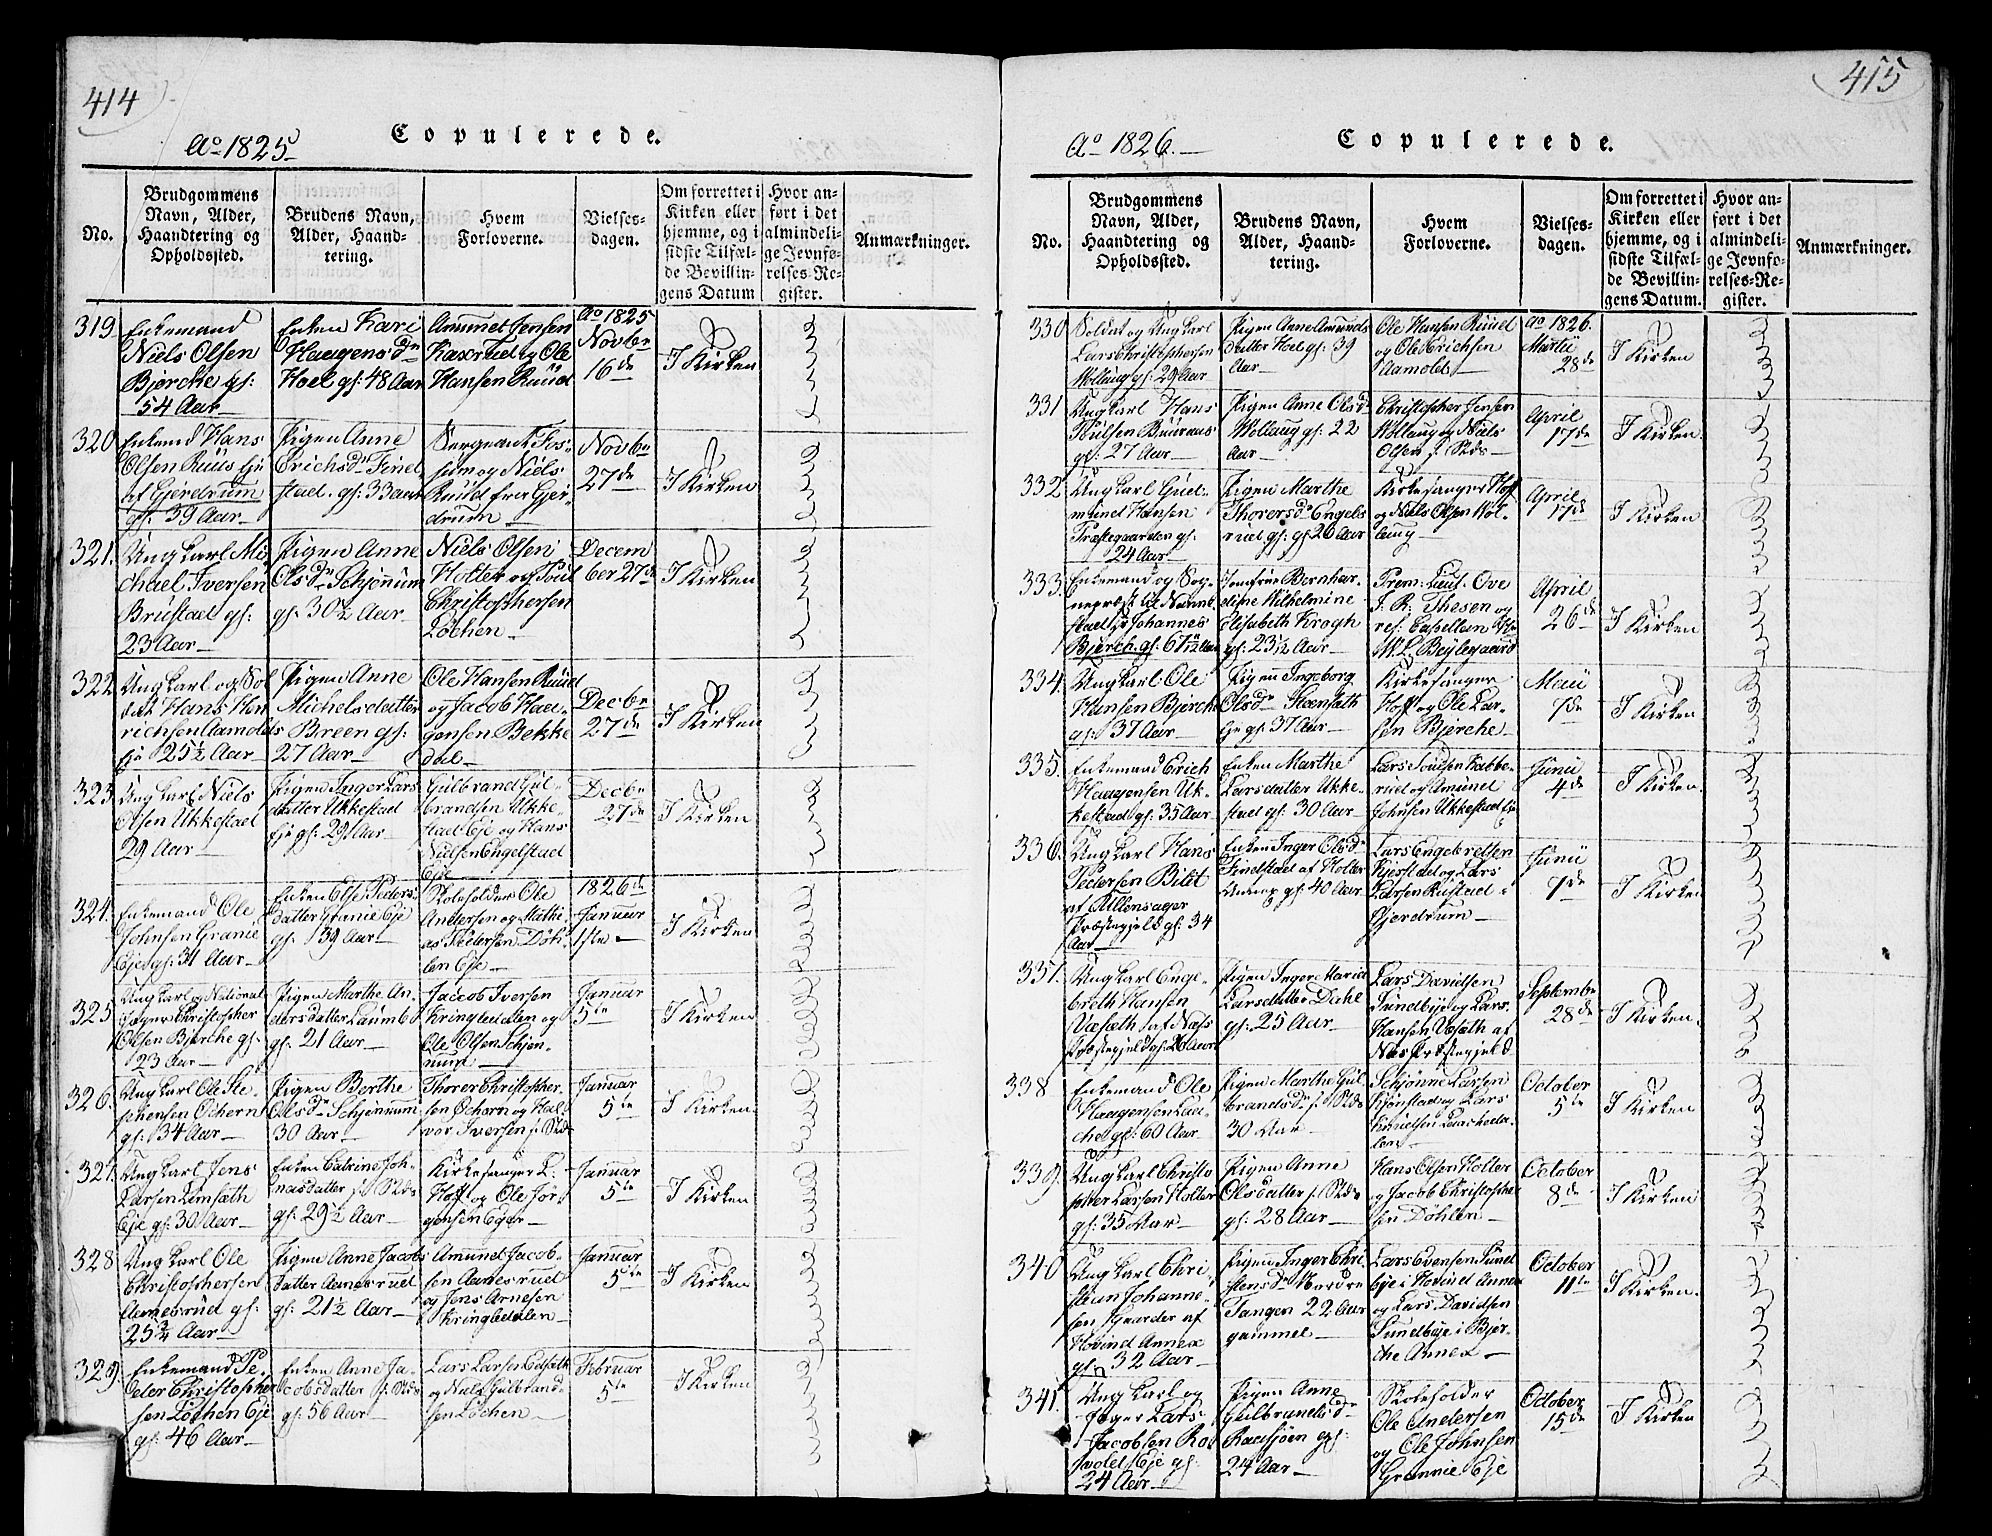 414
Aº 1825
Copulerede.
No.
Brudgommens Navn, Alder, Haandtering og Opholdssted.
Brudens Navn, Alder, Haandtering.
Hvem Forloverne.
Vielses-dagen.
Om forrettet i Kirken eller hjemme, og i sidste Tilfælde Bevillingens Datum
Hvor anført i det almindelige Jevnførelses-Register.
Anmærkninger.
319.
Enkemand
Niels Olsen
Bjerche gf:
54 Aar
Enken Kari
Haagensdr
Hoel gf: 48 Aar
Amund Jensen
Kaxrud og Ole
Hansen Ruud
Aº 1825
Novbr
16de
I Kirken
320
Enkemd Hans
Olsen Ruus
af Gjerdrum
gf: 39 Aar
Pigen Anne
Erichsdr Finel
stad. gf: 33 aar
Sergeant Fos-
sum og Niels
Ruud
Gjer-
drum
Novbr
27de
I Kirken
321.
Ungkarl Mi-
chael Iversen
Brustad gf:
23 Aar
Pigen Anne
Olsdr Schjønum
gf: 30½ Aar
Niels Olsen
Holter og Poul
Christophersen
Løchen
Decem
ber 27de
I Kirken
322
Ungkarl og Sol
dat Hans Hen
richsen Aamold
25½ Aar
Pigen Anne
Michelsdatter
Breen gf:
27 Aar
Ole Hansen Ruud
og Jacob Haa-
gensen Bekke
dal
Decbr
27de
I Kirken
323
Ungkarl Niels
Olsen Ukkestad
29 Aar
Pigen Inger Lars
datter Ukkestad
Eje gf: 29 Aar
Gulbrand Gul-
brandsen Ukke-
stad Eje og Hans
Nielsen Engelstad
Eje
Decbr
27de
I Kirken
324.
Enkemand Ole
Johnsen Granie
Eje gf: 31 Aar
Enken Else Peders-
datter Granie Eje
gf: 39 Aar
Skoleholder Ole
Andersen og Mathi-
as Pedersen Døh-
len Eje
1826de
Januar
1ste
I Kirken
325
Ungkarl og National
Jæger Christopher
Olsen Bjerche gf.
23 Aar
Pigen Marthe An-
dersdatter Laumb
gf: 21 Aar
Jacob Iversen
Kringledalen og
Ole Olsen Schjøn-
num
Januar
5te
I Kirken
326.
Ungkarl Ole Ste-
phensen Ochern
gf: 34 Aar
Pigen Berthe
Olsdr Schjønuum
30 Aar
Thorer Christopher-
sen Ochorn og Hal-
vor Iversen j: Stds
Januar
5te
I Kirken
327.
Ungkarl Jens
Larsen Limsæth
Eje gf: 30 Aar
Enken Catrine Joh-
nesdatter j: Stds
gf: 29½ Aar
Kirkesanger L:
Hoff og Ole Jør-
gensen Eger
Januar
5te
I Kirken
328
Ungkarl Ole
Christophersen
Aamesrud gf:
25¾ Aar
Pigen Anne Jacobs
datter Aanesrud
gf: 21½ Aar
Amund Jacob-
sen Aanesrud
og Jens Arnesen
Kringledalen
Januar
5te
I Kirken
329
Enkemand Pe-
der Christopher
sen Løchen Eje
gf: 46 Aar
Enken Anne Ja-
cobsdatter j: Stds
gf: 56 Aar
Lars Larsen Edsæth
og Niels Gulbrand-
sen Løchen
Februar
5te
I Kirken
415
Aº 1826.
Copulerede.
No.
Brudgommens Navn, Alder, Haandtering og Opholdssted.
Brudens Navn, Alder, Haandtering.
Hvem Forloverne.
Vielses-dagen.
Om forrettet i Kirken eller hjemme, og i sidste Tilfælde Bevillingens Datum.
Hvor anført i det almindelige Jevnførelses-Register.
Anmærkninger.
330
Soldat og Ungkarl
Lars Christophersen
Wollaug gf: 29 Aar
Pigen Anne Amunds
datter Hoel gf: 39
Aar
Ole Hansen Ruud
og Ole Erichsen
Aamold
Aº 1826.
Martii
28de
I Kirken
331
Ungkarl Hans
Poulsen Buuraas
gf: 27 Aar
Pigen Anne Olsdr
Wollaug gf: 22
Aar
Christopher Jensen
Wollaug og Niels
Olsen j. Stds
April
17de
I Kirken.
332
Ungkarl Gud-
mund Hansen
Præstegaarden gf.
24 Aar
Pigen Marthe
Thorersdr Engels
rud gf: gf 26 Aar
Kirkesanger Hoff
og Niels Olsen Wol-
laug
April
17de
I Kirken
333.
Enkemand og Sog-
nepræst til Nanne-
stad Hr Johannes
Bjerch. gf: 61 Aar
Jomfrue Bernhar-
dine Wilhelmine
Elisabeth Krogh
gf: 23 Aar
Prem: Lieut. Ove
J. R: Thesen og
res: Capellan Hr
W. L. Beylegaard
April
26de
I Kirken
334.
Ungkarl Ole
Hansen Bjerche
gf: 37 Aar
Pigen Ingeborg
Olsdr Steensæth
Eje gf: 37 Aar
Kirkesanger
Hoff og Ole Lar-
sen Bjerche
Maii
7de
I Kirken
335.
Enkemand Erich
Haagensen Uk-
kestad gf: 35 Aar
Enken Marthe
Larsdatter Ukke-
stad gf: 30 Aar
Lars Poulsen Kabbe-
rud og Amund
Johnsen Ukkestad Eje
Junii
4de
I Kirken.
336.
Ungkarl Hans
Pedersen Bilit
af Ullensager
Præstegjeld gf: 34
Aar
Enken Inger Olsdr
Finstad af Holter
Annex gf: 40 Aar
Lars Engebretsen
Kjerstad og Lars
Larsen Rustad i
Gjerdrum
Junii
7de
I Kirken
337.
Ungkarl Enge-
breth Hansen
Væsæth af Næss
Præstegjeld gf: 26 Aar
Pigen Inger Maria
Larsdatter Dahl
gf: 25 Aar
Lars Davidsen
Sundbye og Lars
Hansen Vesæth af
Næs Præstegjeld
Septembr
28de
I Kirken.
338
Enkemand Ole
Haagensen Laa-
che gf: 60 Aar
Pigen Marthe Gul
brandsdr j: Stds
30 Aar
Schjønne Larsen
Kjønstad og Lars
October
5te
I Kirken
339.
Ungkarl Christo
pher Larsen Holter
gf: 35 Aar
Pigen Anne
Olsdatter j: Stds
gf: 28 Aar
Hans Olsen Holter
og Jacob Christopher
sen Døhlen
October
8de
I Kirken
340
Ungkarl Chri-
stian Johanne-
sen Gaarder af
Hovind Annex
gf 32 Aar
Pigen Inger Chri-
stensdr Nordre
Tangen 22 Aar
gammel
Lars Evensen Sund
bye i Hovind Annex
og Lars Davidsen
Sundbye i Bjer-
che Annex
October
11te
I Kirken.
341.
Ungkarl og
Jæger Lars
Jacobsen Ros
vold Eje gf:
24 Aar
Pigen Anne
Gulbrandsdr
Raasjøen gf:
24 Aar
Skoleholder
Ole Andersen
og Ole Johnsen
Grannie Eje
October
15de
I Kirken